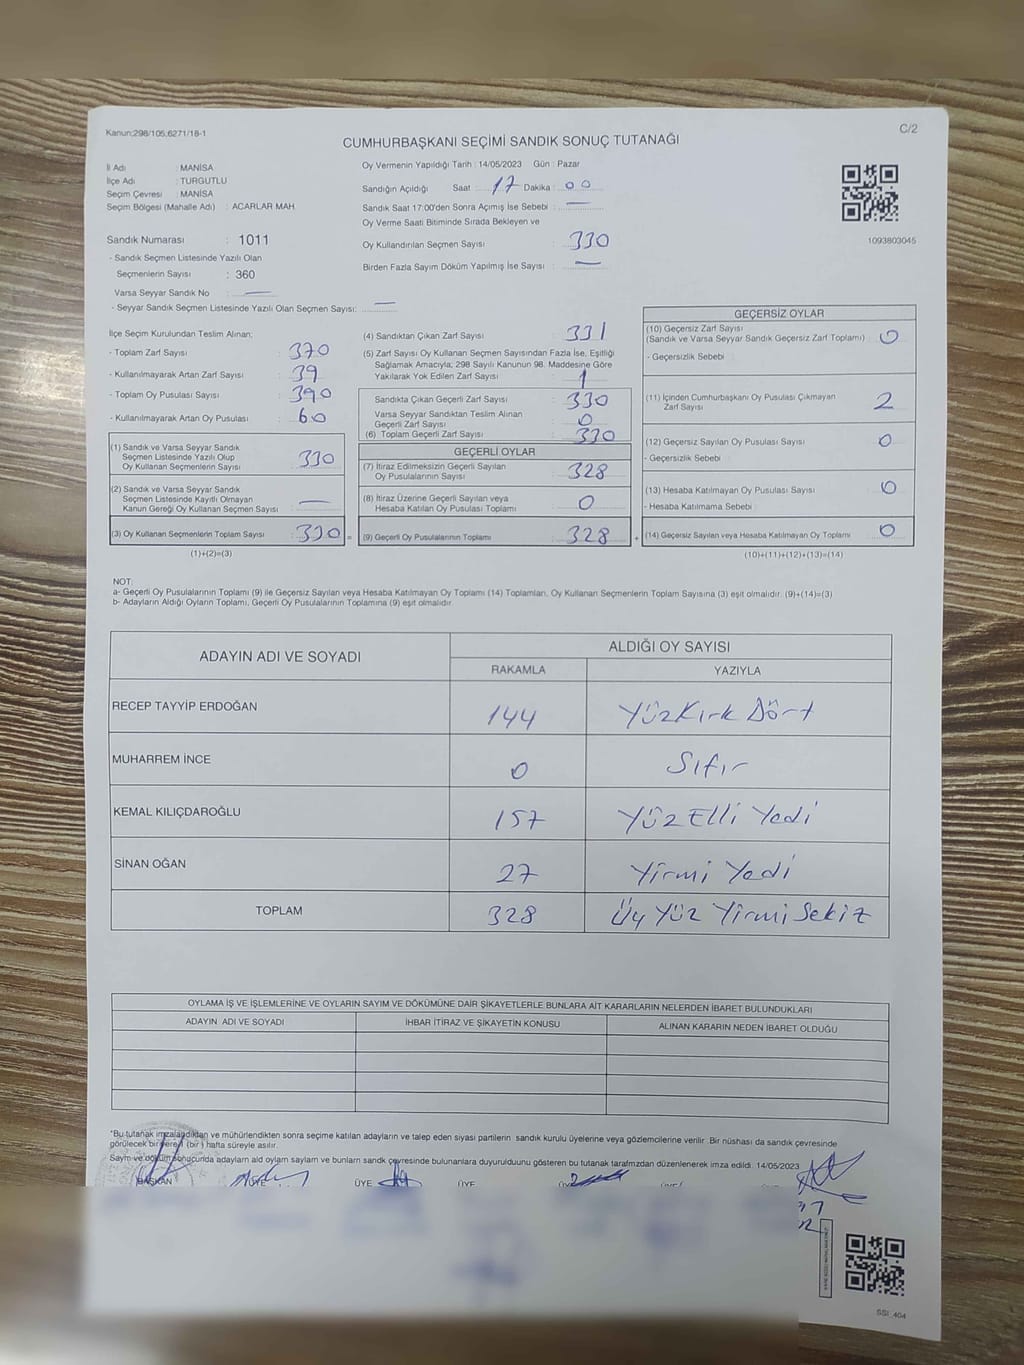 Kanun;298/105;6271/18-1
C/2
CUMHURBAŞKANI SEÇİMİ SANDIK SONUÇ TUTANAĞI
İl Adı : MANİSA
İlçe Adı : TURGUTLU
Seçim Çevresi : MANİSA
Seçim Bölgesi (Mahalle Adı) : ACARLAR MAH.
Sandık Numarası : 1011
- Sandık Seçmen Listesinde Yazılı Olan
Seçmenlerin Sayısı : 360
Varsa Seyyar Sandık No : —
- Seyyar Sandık Seçmen Listesinde Yazılı Olan Seçmen Sayısı: —
Oy Vermenin Yapıldığı Tarih : 14/05/2023 Gün : Pazar
Sandığın Açıldığı Saat : 17 Dakika : 00
Sandık Saat 17:00'den Sonra Açımış İse Sebebi : —
Oy Verme Saati Bitiminde Sırada Bekleyen ve
Oy Kullandırılan Seçmen Sayısı : 330
Birden Fazla Sayım Döküm Yapılmış İse Sayısı : —
1093803045
İlçe Seçim Kurulundan Teslim Alınan;
- Toplam Zarf Sayısı : 370
- Kullanılmayarak Artan Zarf Sayısı : 39
- Toplam Oy Pusulası Sayısı : 390
- Kullanılmayarak Artan Oy Pusulası : 60
(1) Sandık ve Varsa Seyyar Sandık
Seçmen Listesinde Yazılı Olup
Oy Kullanan Seçmenlerin Sayısı : 330
(2) Sandık ve Varsa Seyyar Sandık
Seçmen Listesinde Kayıtlı Olmayan
Kanun Gereği Oy Kullanan Seçmen Sayısı : —
(3) Oy Kullanan Seçmenlerin Toplam Sayısı : 330 =
(1)+(2)=(3)
(4) Sandıktan Çıkan Zarf Sayısı : 331
(5) Zarf Sayısı Oy Kullanan Seçmen Sayısından Fazla İse, Eşitliği
Sağlamak Amacıyla; 298 Sayılı Kanunun 98. Maddesine Göre
Yakılarak Yok Edilen Zarf Sayısı : 1
Sandıkta Çıkan Geçerli Zarf Sayısı : 330
Varsa Seyyar Sandıktan Teslim Alınan
Geçerli Zarf Sayısı : 0
(6) Toplam Geçerli Zarf Sayısı : 330
GEÇERLİ OYLAR
(7) İtiraz Edilmeksizin Geçerli Sayılan
Oy Pusulalarının Sayısı : 328
(8) İtiraz Üzerine Geçerli Sayılan veya
Hesaba Katılan Oy Pusulası Toplamı : 0
(9) Geçerli Oy Pusulalarının Toplamı : 328 +
GEÇERSİZ OYLAR
(10) Geçersiz Zarf Sayısı
(Sandık ve Varsa Seyyar Sandık Geçersiz Zarf Toplamı) : 0
- Geçersizlik Sebebi :
(11) İçinden Cumhurbaşkanı Oy Pusulası Çıkmayan
Zarf Sayısı : 2
(12) Geçersiz Sayılan Oy Pusulası Sayısı : 0
- Geçersizlik Sebebi :
(13) Hesaba Katılmayan Oy Pusulası Sayısı : 0
- Hesaba Katılmama Sebebi :
(14) Geçersiz Sayılan veya Hesaba Katılmayan Oy Toplamı : 0
(10)+(11)+(12)+(13)=(14)
NOT:
a- Geçerli Oy Pusulalarının Toplamı (9) ile Geçersiz Sayılan veya Hesaba Katılmayan Oy Toplamı (14) Toplamları, Oy Kullanan Seçmenlerin Toplam Sayısına (3) eşit olmalıdır. (9)+(14)=(3)
b- Adayların Aldığı Oyların Toplamı, Geçerli Oy Pusulalarının Toplamına (9) eşit olmalıdır.
ADAYIN ADI VE SOYADI
ALDIĞI OY SAYISI
RAKAMLA YAZIYLA
RECEP TAYYİP ERDOĞAN 144 Yüz Kırk Dört
MUHARREM İNCE 0 Sıfır
KEMAL KILIÇDAROĞLU 157 Yüz Elli Yedi
SİNAN OĞAN 27 Yirmi Yedi
TOPLAM 328 Üç Yüz Yirmi Sekiz
OYLAMA İŞ VE İŞLEMLERİNE VE OYLARIN SAYIM VE DÖKÜMÜNE DAİR ŞİKAYETLERLE BUNLARA AİT KARARLARIN NELERDEN İBARET BULUNDUKLARI
ADAYIN ADI VE SOYADI İHBAR İTİRAZ VE ŞİKAYETİN KONUSU ALINAN KARARIN NEDEN İBARET OLDUĞU
*Bu tutanak imzalandıktan ve mühürlendikten sonra seçime katılan adayların ve talep eden siyasi partilerin sandık kurulu üyelerine veya gözlemcilerine verilir. Bir nüshası da sandık çevresinde
görülecek bir yere 1 (bir) hafta süreyle asılır.
Sayım ve döküm sonucunda adayların aldı oyların sayların ve bunların sandk çevresinde bulunanlara duyurulduunu gösteren bu tutanak tarafmzdan düzenlenerek imza edildi. 14/05/2023
BAŞKAN ÜYE ÜYE ÜYE
SSI_404